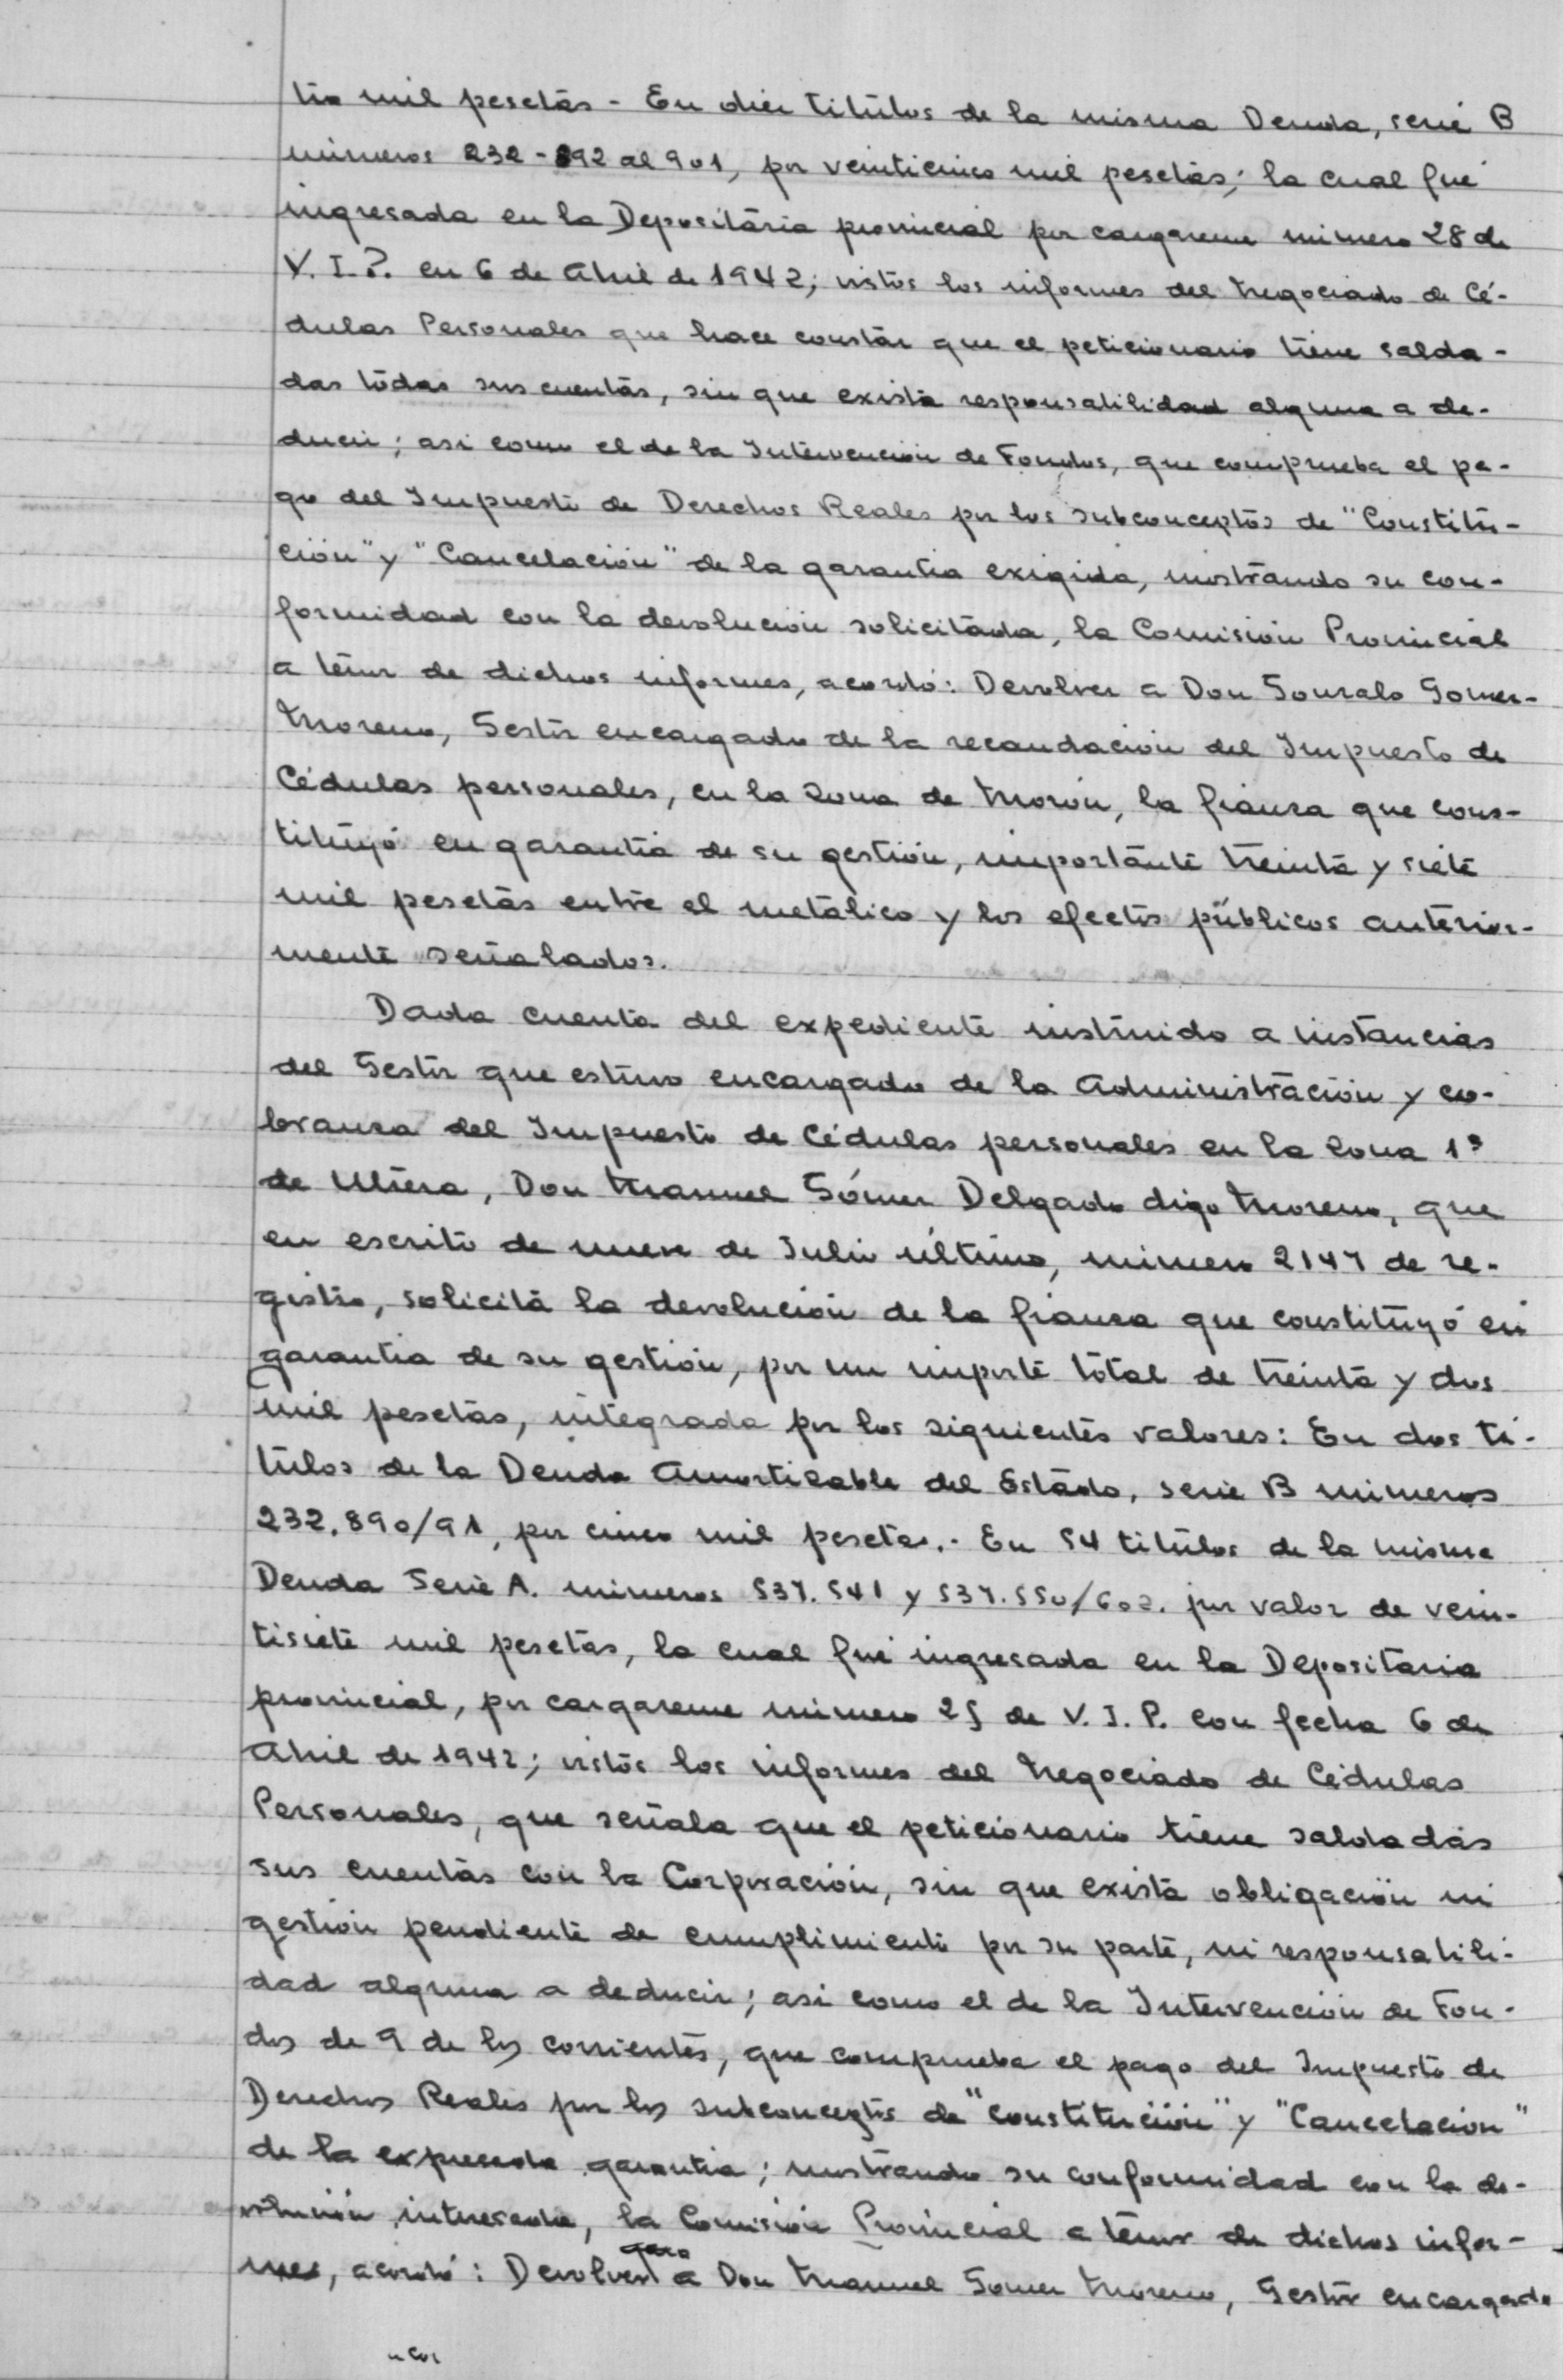 tro mil pesetas - En diez titulos de la misma Deuda, serie B
números 232-892 al 901, por veinticinco mil pesetas; la cual fué
ingresada en la Depositaria provincial por cargareme número 28 de
V.I.P. en 6 de Abril de 1942; vistos los informes del Negociado de Cé-
dulas Personales que hace constar que el peticionario tiene salda-
das todas sus cuentas, sin que exista responsabilidad alguna a de-
ducir; asi como el de la Intervención de Fondos, que comprueba el pa-
go del Impuesto de Derechos Reales por los subconceptos de "Constitu-
ción" y "Cancelación" de la garantia exigida, mostrando su con-
formidad con la devolución solicitada, la Comisión Provincial
a tenor de dichos informes, acordó: Devolver a Don Gonzalo Gomez-
Moreno, Gestor encargado de la recaudación del Impuesto de
Cédulas personales, en la zona de Morón, la fianza que cons-
tituyó en garantia de su gestión, importante treinta y siete
mil pesetas entre el metálico y los efectos públicos anterior-
mente señalados.
Dada cuenta del expediente instruido a instancias
del Gestor que estuvo encargado de la Administración y co-
branza del Impuesto de Cédulas personales en la zona 1ª
de Utrera, Don Manuel Gómez Delgado digo Moreno, que
en escrito de nueve de Julio último, número 2147 de re-
gistro, solicita la devolución de la fianza que constituyó en
garantia de su gestión, por un importe total de treinta y dos
mil pesetas, integrada por los siguientes valores: En dos tí-
tulos de la Deuda Amortizable del Estado, serie B números
232.890/91, por cinco mil pesetas.- En 54 titulos de la misma
Deuda Serie A. números 537.541 y 537.550/602. por valor de vein-
tisiete mil pesetas, la cual fué ingresada en la Depositaria
provincial, por cargareme número 25 de V.I.P. con fecha 6 de
Abril de 1942; vistos los informes del Negociado de Cédulas
Personales, que señala que el peticionario tiene saldadas
sus cuentas con la Corporación, sin que exista obligación ni
gestión pendiente de cumplimiento por su parte, ni responsabili-
dad alguna a deducir; asi como el de la Intervención de Fon-
dos de 9 de los corrientes, que comprueba el pago del Impuesto de
Derechos Reales por los subconceptos de "Constitución" y "Cancelacion"
de la expresada garantia; mostrando su conformidad con la de-
volución interesada, la Comisión Provincial a tenor de dichos infor-
mes, acordó: Devolver a Don Manuel Gomez Moreno, Gestor encargado